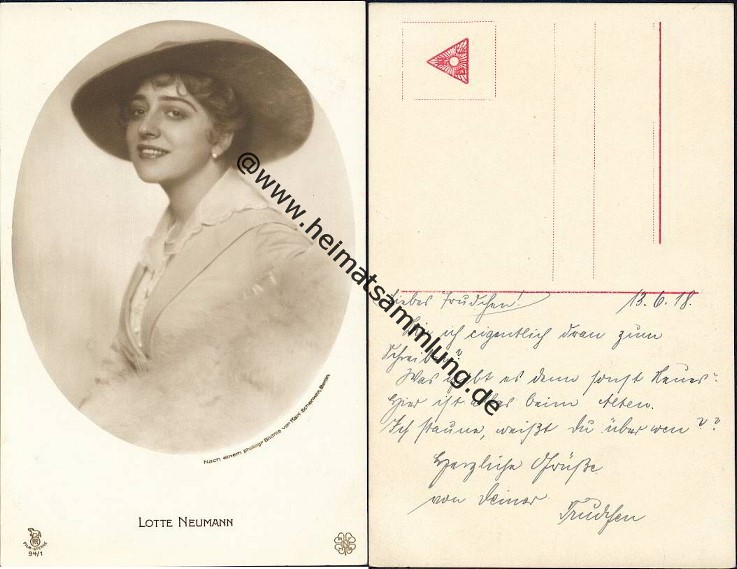 @www.heimatsammlung.de
Nach einem philogr. Bildnis von Karl Schenker, Berlin
LOTTE NEUMANN
94/1
Liebes Trudchen! 13.6.18.
ich eigentlich dran zum
Schreiben?
Was gibt es denn sonst Neues?
Hier ist alles beim Alten.
Ich staune, weißt du über wen??
Herzliche Grüße
von Deiner
Trudchen